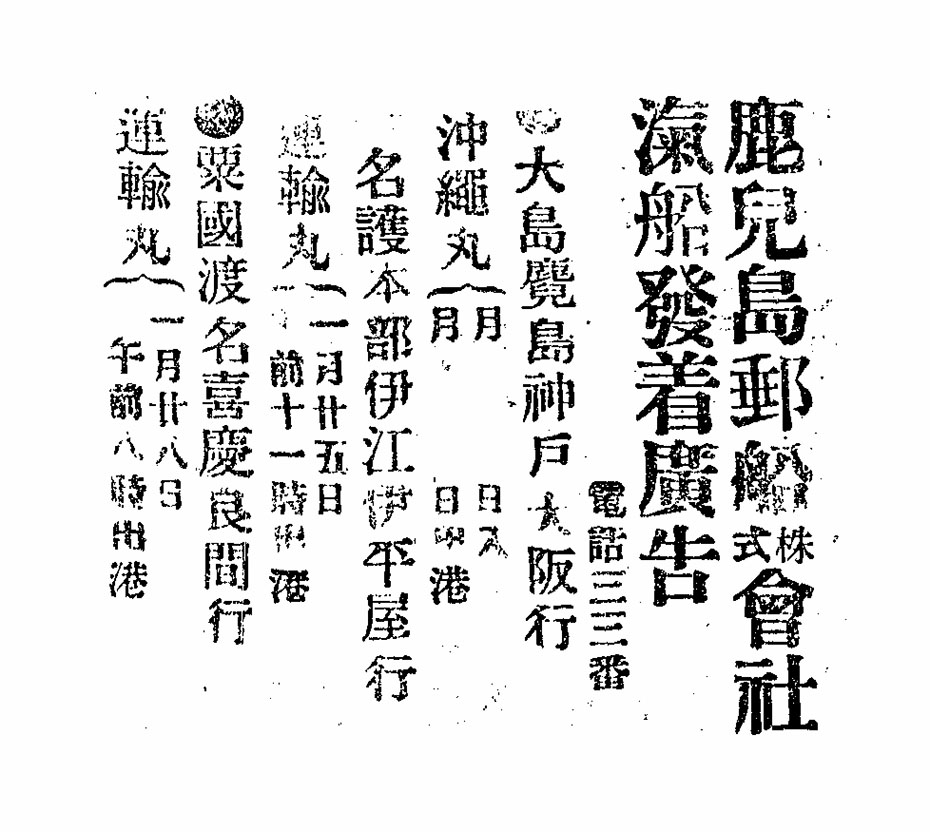 鹿兒島郵船株式會社
滊船發着廣告
電話三三番
●大島覽島神戶大阪行
沖繩丸
月 日入
月 日出港
名護本部伊江伊平屋行
運輸丸
一月廿五日
前十一時出港
●粟國渡名喜慶良間行
運輸丸
一月廿八日
午前八時出港